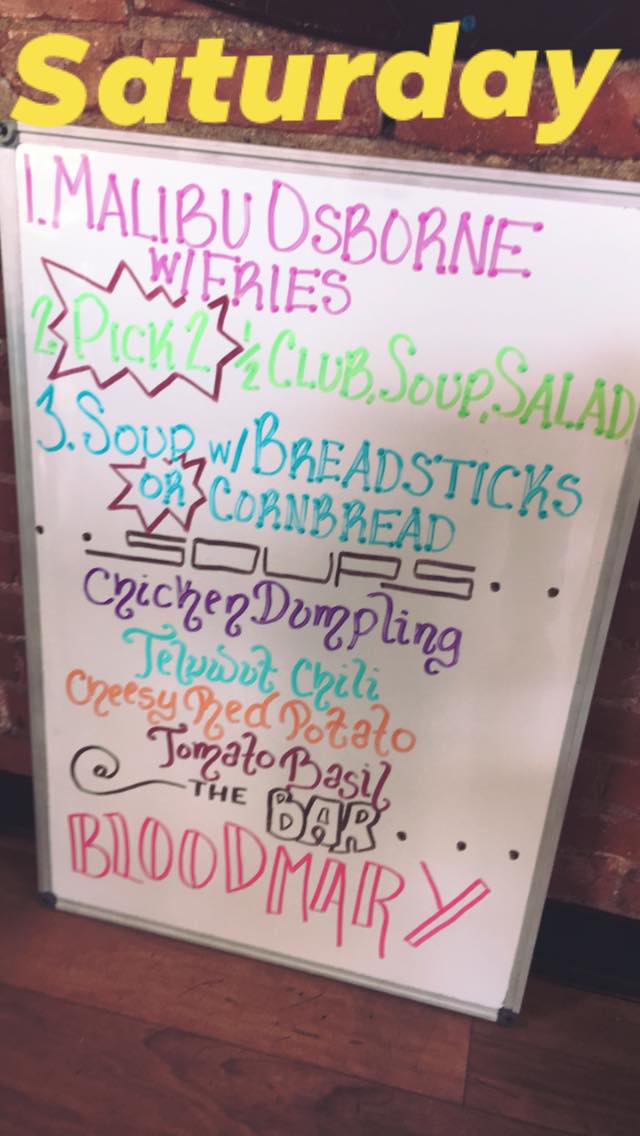 Saturday
1. MALIBU OSBORNE
W/FRIES
2. PICK 2 1/2 CLUB, SOUP, SALAD
3. SOUP W/ BREADSTICKS
OR CORNBREAD
..SOUPS..
Chicken Dumpling
Chili
Cheesy Red Potato
Tomato Basil
THE BAR....
BLOODMARY